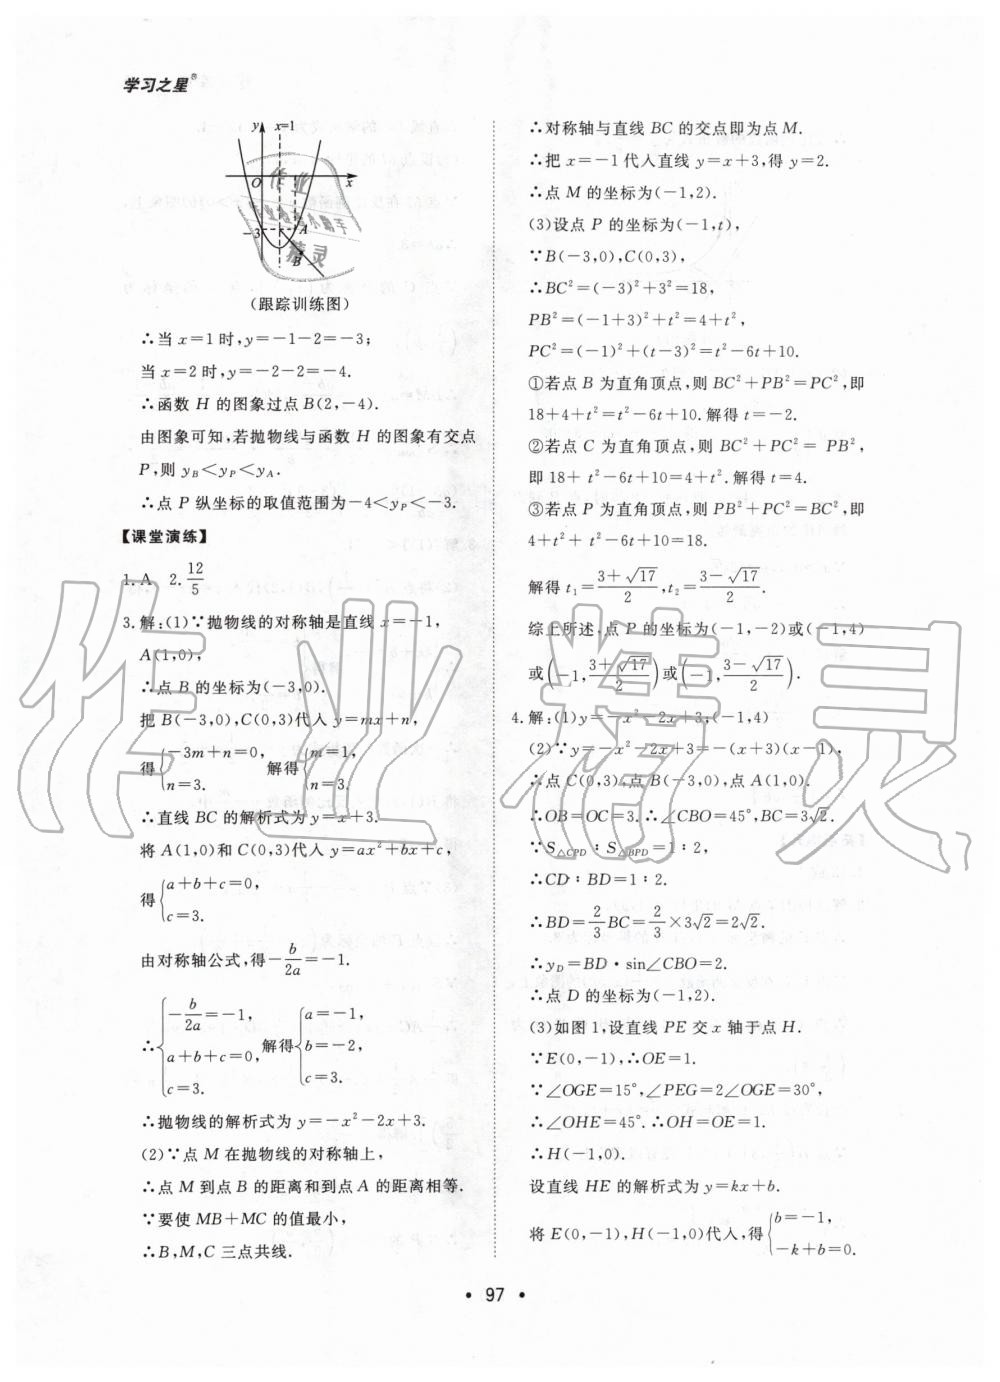 学习之星®
y
x=1
O
x
-3
A
B
(跟踪训练图)
∴当 x=1 时,y=-1-2=-3;
当 x=2 时,y=-2-2=-4.
∴函数 H 的图象过点 B(2,-4).
由图象可知,若抛物线与函数 H 的图象有交点
P,则 y_B<y_P<y_A.
∴点 P 纵坐标的取值范围为-4<y_P<-3.
【课堂演练】
1.A 2.12/5
3.解:(1)∵抛物线的对称轴是直线 x=-1,
A(1,0),
∴点 B 的坐标为(-3,0).
把 B(-3,0),C(0,3)代入 y=mx+n,
得{-3m+n=0, n=3. 解得{m=1, n=3.
∴直线 BC 的解析式为 y=x+3.
将 A(1,0)和 C(0,3)代入 y=ax²+bx+c,
得{a+b+c=0, c=3.
由对称轴公式,得-b/2a=-1.
∴{-b/2a=-1, a+b+c=0, c=3. 解得{a=-1, b=-2, c=3.
∴抛物线的解析式为 y=-x²-2x+3.
(2)∵点 M 在抛物线的对称轴上,
∴点 M 到点 B 的距离和到点 A 的距离相等.
∵要使 MB+MC 的值最小,
∴B,M,C 三点共线.
∴对称轴与直线 BC 的交点即为点 M.
∴把 x=-1 代入直线 y=x+3,得 y=2.
∴点 M 的坐标为(-1,2).
(3)设点 P 的坐标为(-1,t),
∵B(-3,0),C(0,3),
∴BC²=(-3)²+3²=18,
PB²=(-1+3)²+t²=4+t²,
PC²=(-1)²+(t-3)²=t²-6t+10.
①若点 B 为直角顶点,则 BC²+PB²=PC²,即
18+4+t²=t²-6t+10.解得 t=-2.
②若点 C 为直角顶点,则 BC²+PC²= PB²,
即 18+ t²-6t+10=4+t².解得 t=4.
③若点 P 为直角顶点,则 PB²+PC²=BC²,即
4+t²+ t²-6t+10=18.
解得 t₁=(3+√17)/2,t₂=(3-√17)/2.
综上所述,点 P 的坐标为(-1,-2)或(-1,4)
或(-1,(3+√17)/2)或(-1,(3-√17)/2).
4.解:(1)y=-x²-2x+3;(-1,4)
(2)∵y=-x²-2x+3=-(x+3)(x-1),
∴点 C(0,3),点 B(-3,0),点 A(1,0).
∴OB=OC=3.∴∠CBO=45°,BC=3√2.
∵S△CPD∶S△BPD=1∶2,
∴CD∶BD=1∶2.
∴BD=2/3 BC=2/3×3√2=2√2.
∴y_D=BD·sin∠CBO=2.
∴点 D 的坐标为(-1,2).
(3)如图 1,设直线 PE 交 x 轴于点 H.
∵E(0,-1),∴OE=1.
∵∠OGE=15°,∠PEG=2∠OGE=30°,
∴∠OHE=45°.∴OH=OE=1.
∴H(-1,0).
设直线 HE 的解析式为 y=kx+b.
将 E(0,-1),H(-1,0)代入,得{b=-1, -k+b=0.
• 97 •
作业精灵